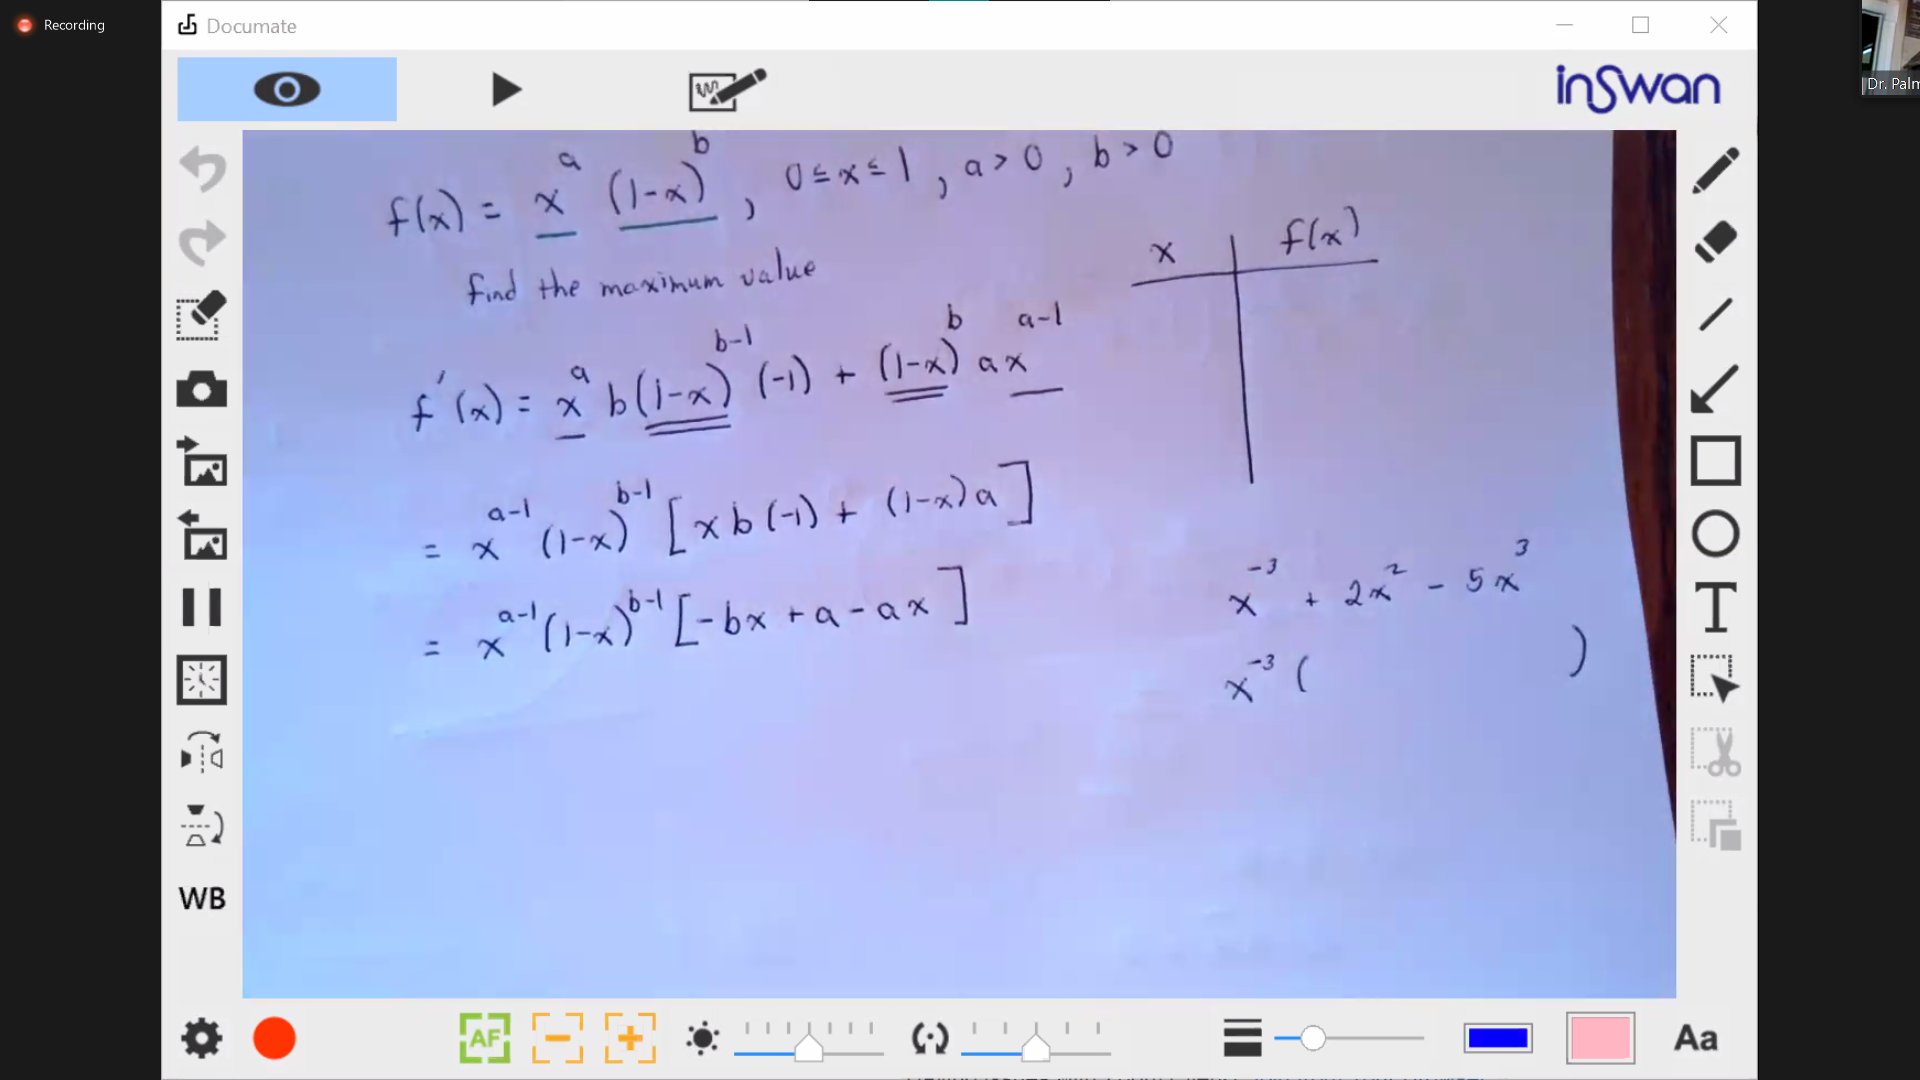 Recording
Documate
inswan
f(x) = x^a (1-x)^b , 0 ≤ x ≤ 1 , a > 0 , b > 0
find the maximum value
x | f(x)
f'(x) = x^a b(1-x)^{b-1} (-1) + (1-x)^b a x^{a-1}
= x^{a-1} (1-x)^{b-1} [x b (-1) + (1-x) a]
= x^{a-1} (1-x)^{b-1} [-bx + a - ax]
x^{-3} + 2x^2 - 5x^3
x^{-3} ( )
T
WB
AF
Aa
Dr. Palm